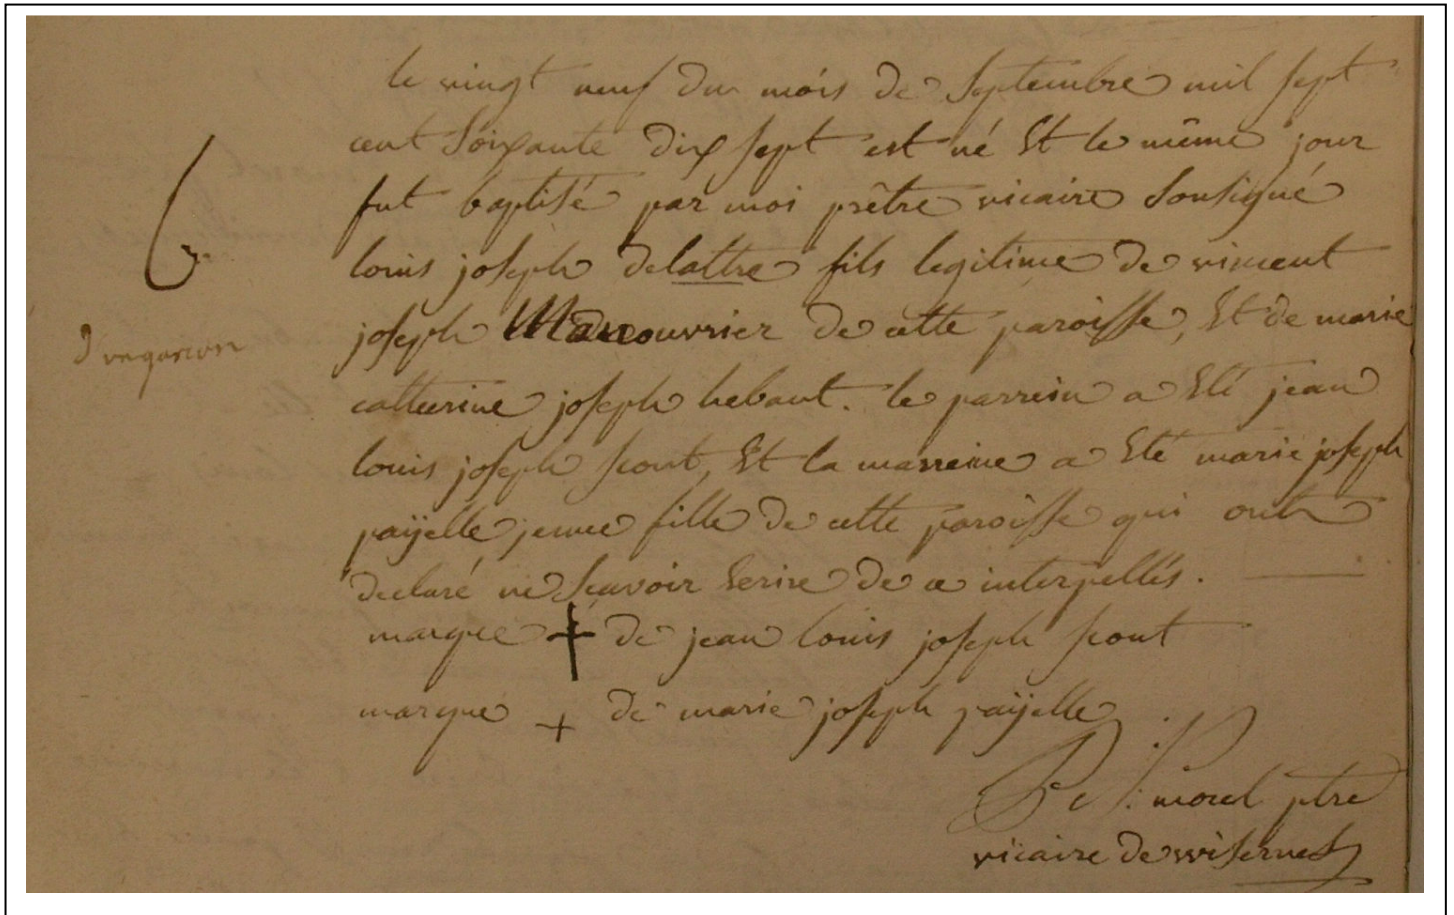 le vingt neuf du mois de Septembre mil sept
cent Soixante dix sept est né Et le même jour
fut baptisé par moi prêtre vicaire Sousigné
louis joseph delattre fils legitime de vincent
joseph Manouvrier de cette paroisse, Et de marie
catterine joseph hebant. le parrein a Eté jean
louis joseph scout, Et la marreine a Eté marie joseph
paÿelle jeune fille de cette paroisse qui ont
declaré ne Sçavoir Ecrire de ce interpellés.
marque de jean louis joseph scout
marque + de marie joseph paÿelle
morel ptre
vicaire de wisernes
6